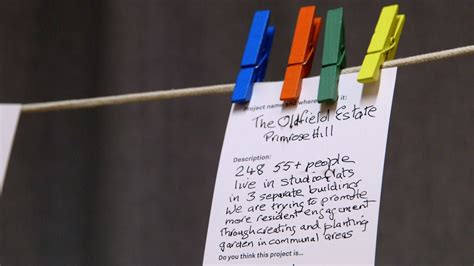 Project name and where it:
The Oldfield Estate
Primrose Hill
Description:
248 55+ people
live in studio flats
in 3 separate buildings
We are trying to promote
more resident engagement
through creating and planting
garden in communal areas
Do you think this project is...